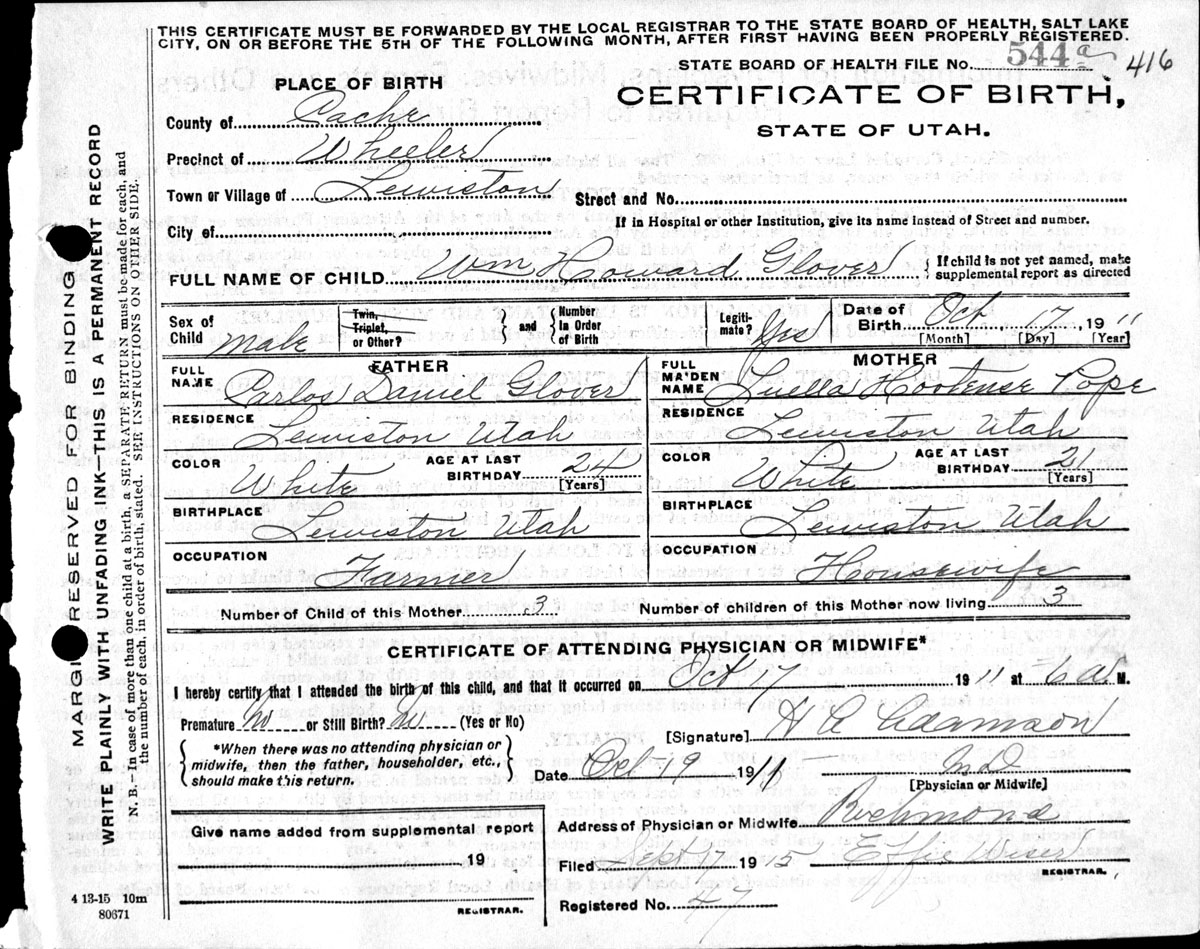 THIS CERTIFICATE MUST BE FORWARDED BY THE LOCAL REGISTRAR TO THE STATE BOARD OF HEALTH, SALT LAKE
CITY, ON OR BEFORE THE 5TH OF THE FOLLOWING MONTH, AFTER FIRST HAVING BEEN PROPERLY REGISTERED.
STATE BOARD OF HEALTH FILE No. 544 a 416
PLACE OF BIRTH
CERTIFICATE OF BIRTH,
STATE OF UTAH.
County of Cache
Precinct of Wheeler
Town or Village of Lewiston
Street and No.
If in Hospital or other Institution, give its name instead of Street and number.
City of
FULL NAME OF CHILD Wm Howard Glover { If child is not yet named, make
supplemental report as directed
Sex of Child Male
Twin, Triplet, or Other? } and { Number in Order of Birth
Legiti-mate? Yes
Date of Birth Oct 17, 1911
[Month] [Day] [Year]
FATHER
FULL NAME Carlos Daniel Glover
RESIDENCE Lewiston Utah
COLOR White AGE AT LAST BIRTHDAY 24 [Years]
BIRTHPLACE Lewiston Utah
OCCUPATION Farmer
MOTHER
FULL MAIDEN NAME Luella Hortense Pope
RESIDENCE Lewiston Utah
COLOR White AGE AT LAST BIRTHDAY 21 [Years]
BIRTHPLACE Lewiston Utah
OCCUPATION Housewife
Number of Child of this Mother 3 Number of children of this Mother now living 3
CERTIFICATE OF ATTENDING PHYSICIAN OR MIDWIFE*
I hereby certify that I attended the birth of this child, and that it occurred on Oct 17 1911 at 6 a M.
Premature No or Still Birth? No (Yes or No)
[Signature] H A Adamson
{ *When there was no attending physician or
midwife, then the father, householder, etc.,
should make this return. }
Date Oct 19 1911 M D
[Physician or Midwife]
Give name added from supplemental report
19
REGISTRAR.
Address of Physician or Midwife Richmond
Filed Sept 17 1915 Effie Wiser
REGISTRAR.
Registered No. 47
4 13-15 10m
80671
MARGIN RESERVED FOR BINDING
WRITE PLAINLY WITH UNFADING INK—THIS IS A PERMANENT RECORD
N. B.—In case of more than one child at a birth, a SEPARATE RETURN must be made for each, and
the number of each, in order of birth, stated. SEE INSTRUCTIONS ON OTHER SIDE.